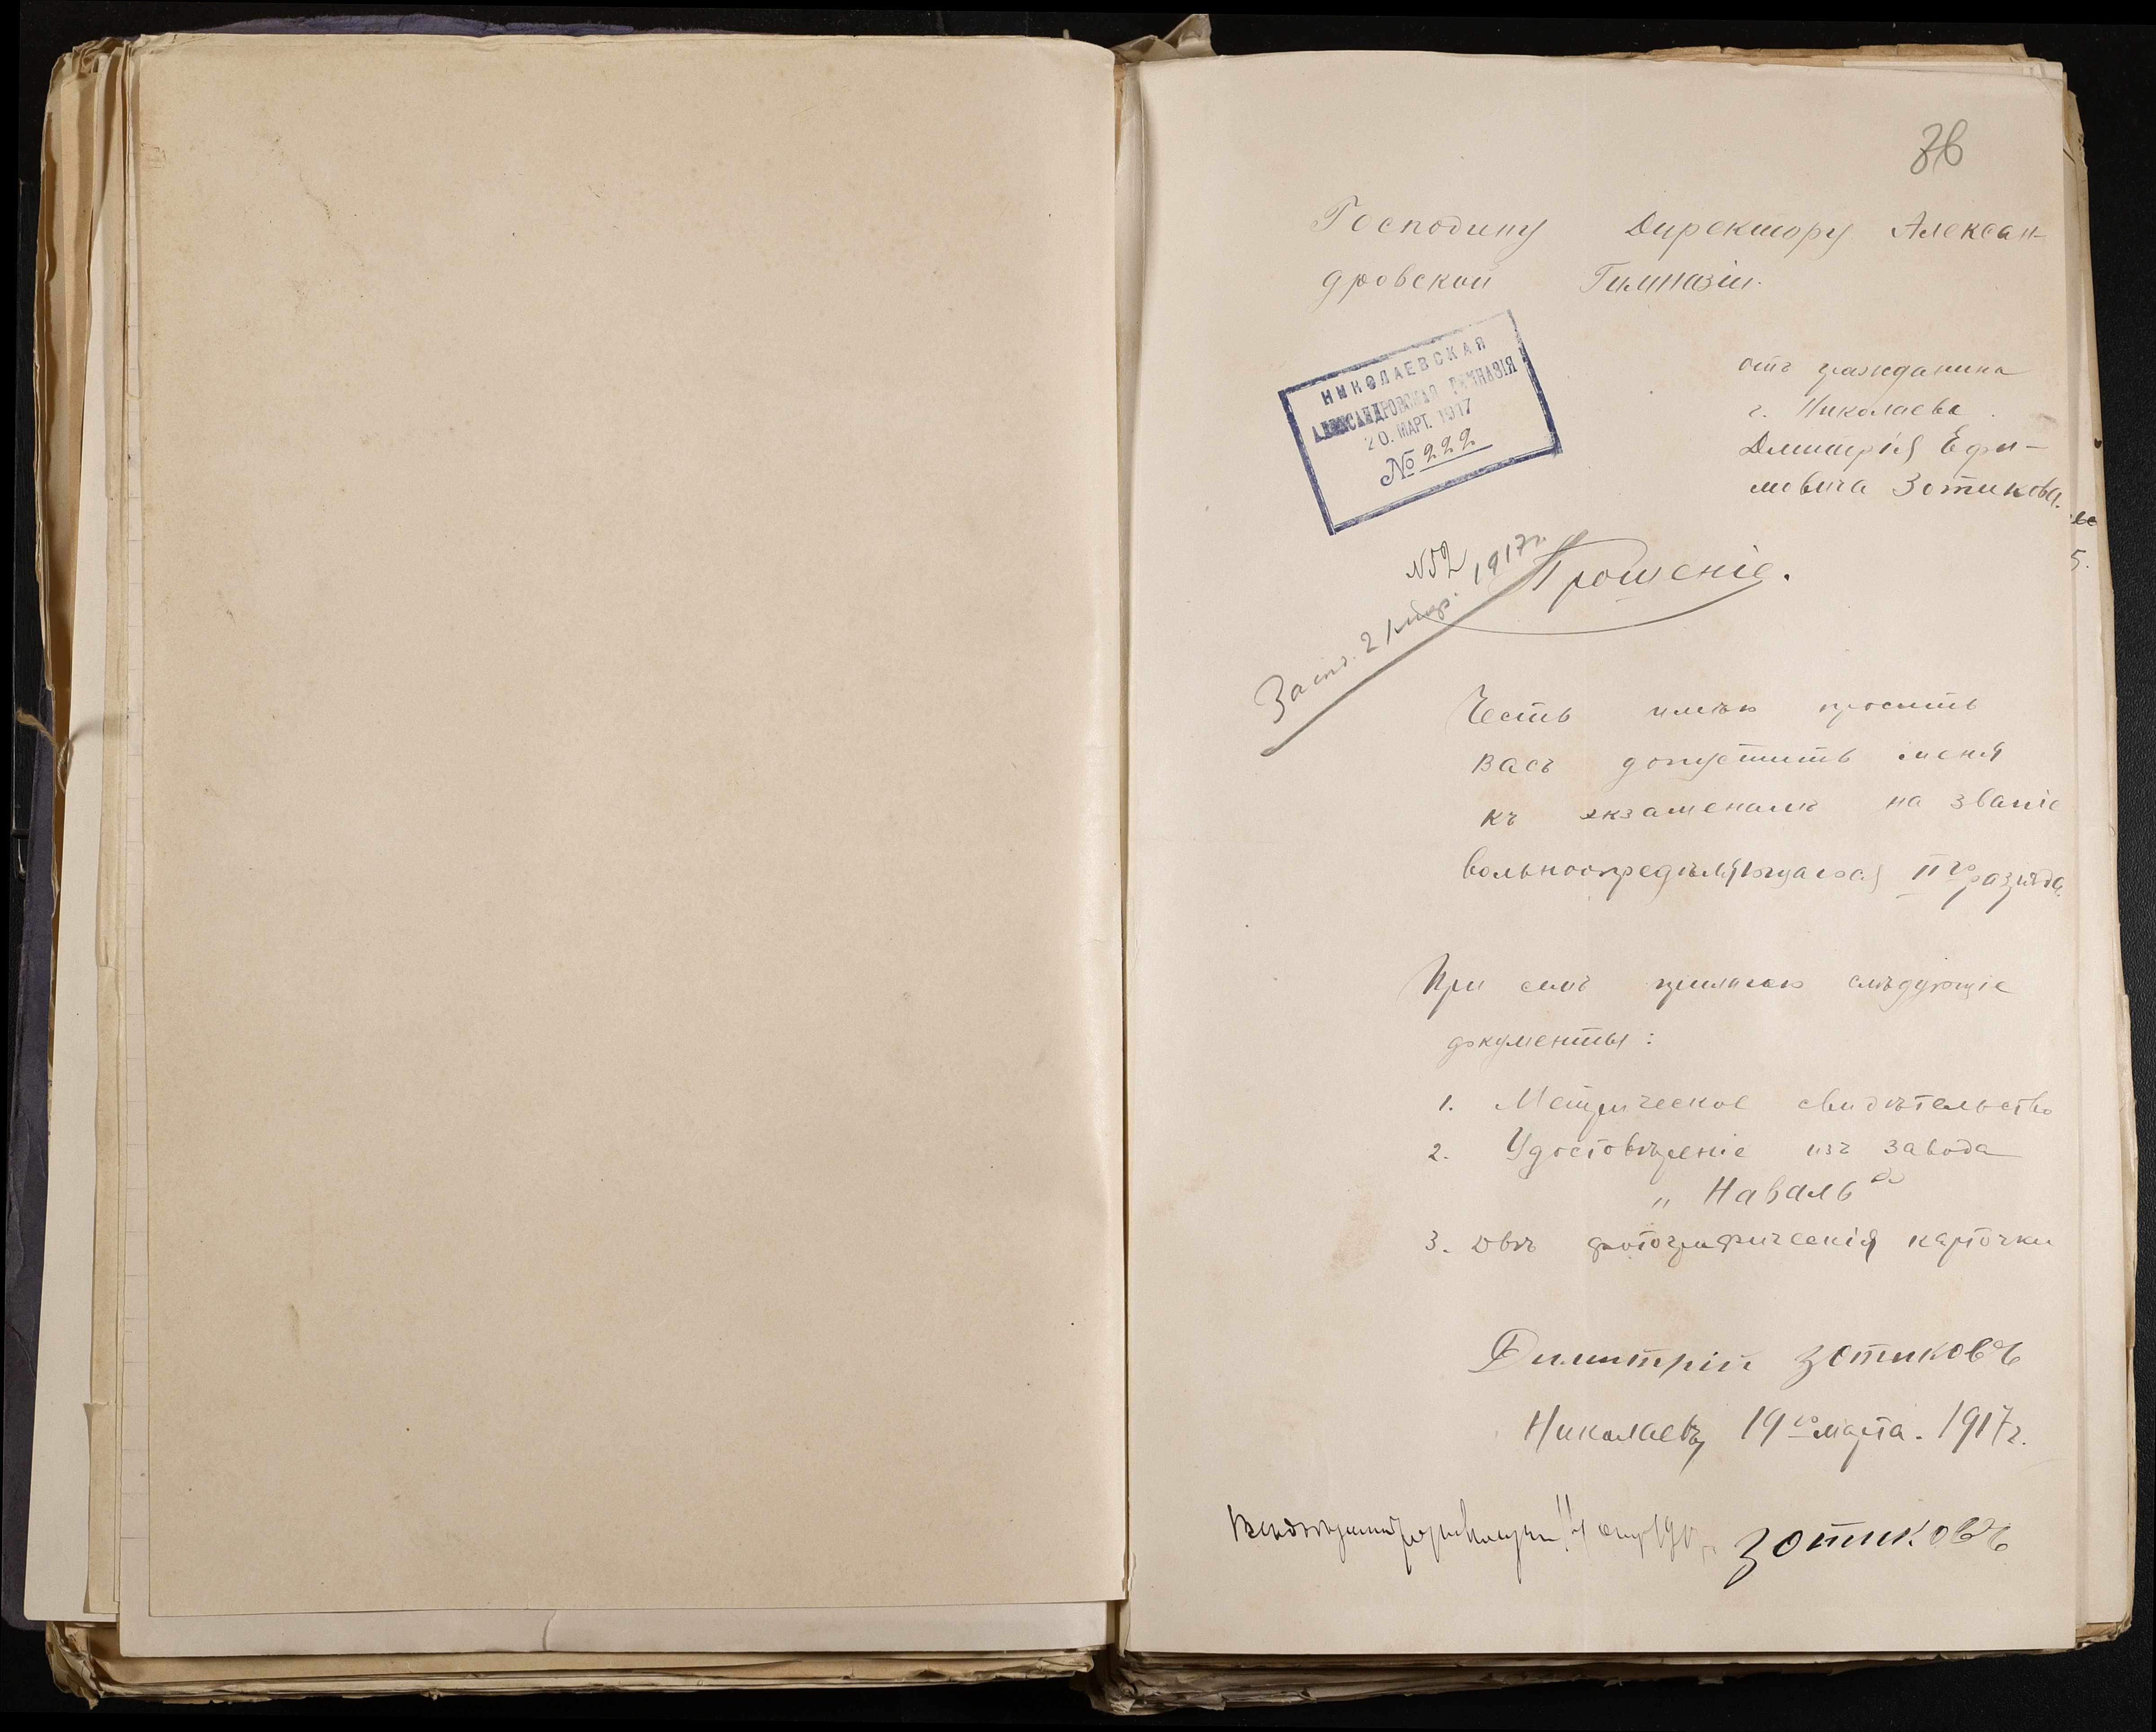 36
Господину Директору Алексан-
дровской Гимназіи.
НИКОЛАЕВСКАЯ
АЛЕКСАНДРОВСКАЯ ГИМНАЗІЯ
20. МАРТ. 1917
№ 222
отъ гражданина
г. Николаева
Дмитрія Ефи-
мовича Зотикова.
№52
1917г.
Прошеніе.
Честь имѣю просить
Васъ допустить меня
къ экзаменамъ на званіе
вольноопредѣляющагося IIго разряда.
При семъ прилагаю слѣдующіе
документы:
1. Метрическое свидѣтельство
2. Удостовѣреніе изъ завода
„ Наваль “
3. Двѣ фотографическія карточки
Димитрій Зотиковъ
Николаевъ 19го марта. 1917г.
Зотиковъ